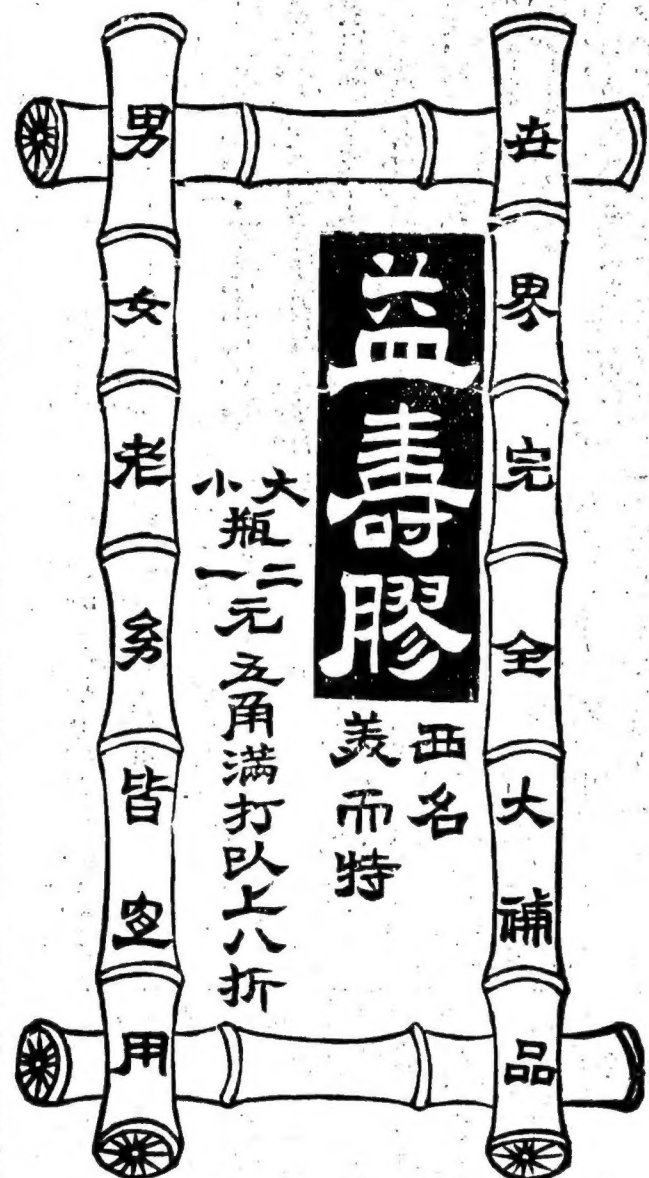 世界完全大補品
益壽膠
西名
美而特
大瓶二元五角滿打以上八折
小瓶一元五角滿打以上八折
男女老幼皆宜用